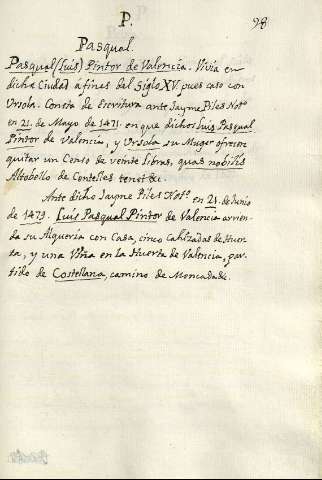 P.
98
Pasqual.
Pasqual (Luis) Pintor de Valencia. Vivia en
dicha Ciudad á fines del Siglo XV. pues caso con
Ursola. Consta de Escritura ante Jayme Piles Notº
en 21. de Mayo de 1471. en que dichos Luis Pasqual
Pintor de Valencia, y Ursola su Muger ofrecen
quitar un Censo de veinte libras, quas nobilis
Altobello de Contelles tenet &c.
Ante dicho Jayme Piles Notº en 21. de Junio
de 1473. Luis Pasqual Pintor de Valencia arrien-
da su Alqueria con Casa, cinco Cahizadas de Huer-
ta, y una Viña en la Huerta de Valencia, par-
tido de Costellana, camino de Moncada &c.